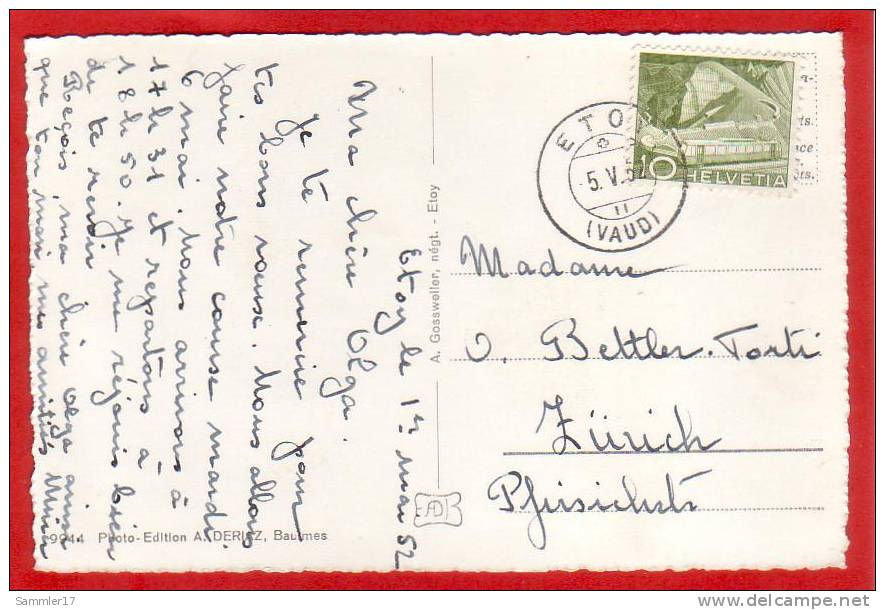 Etoy le 1er mai 52
Ma chère Olga.
Je te remercie pour
tes bons vœux. Nous allons
faire notre course mardi
6 mai. Nous arrivons à
17 h 31 et repartons à
18 h 50. Je me réjouis bien
de te revoir
Reçois, ma chère Olga ainsi
que ton mari mes amitiés
A. Gossweiler, négt. - Etoy
9944 Photo-Edition A. DERIAZ, Baulmes
AD
ETOY
5.V.52
11
(VAUD)
10 HELVETIA
Madame
O. Bettler-Torti
Zürich
Pfirsichstr
Sammler17
delcampe.net